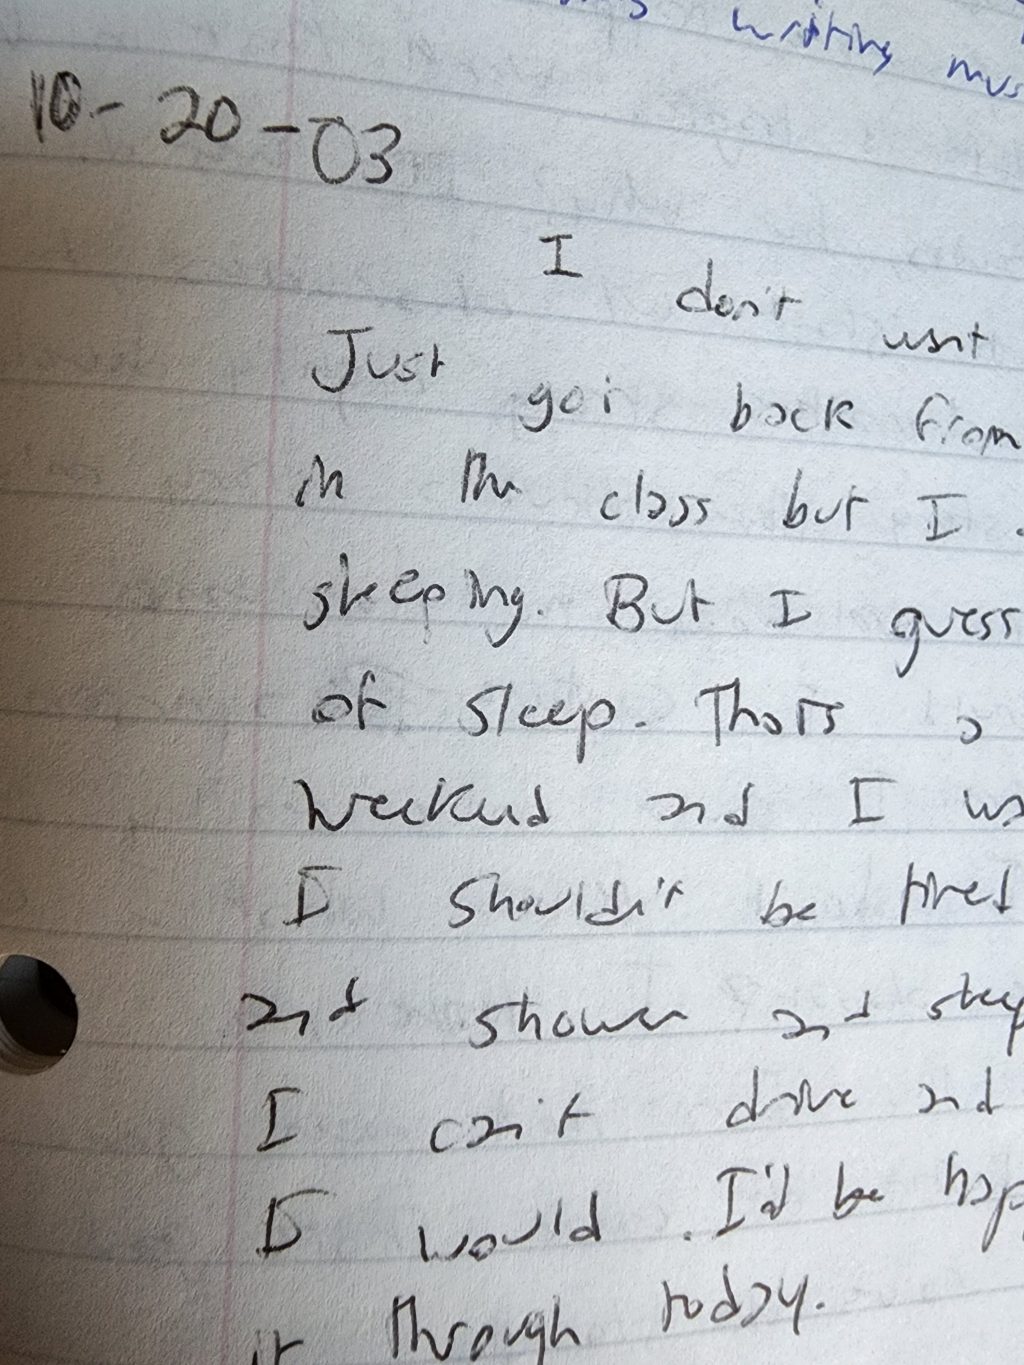 writing
10-20-03
I don't want
Just got back from
in the class but I
sleeping. But I guess
of sleep. That's a
weekend and I
I shouldn't be tired
and shower and
I can't drive and
I would. I'd be
it through today.